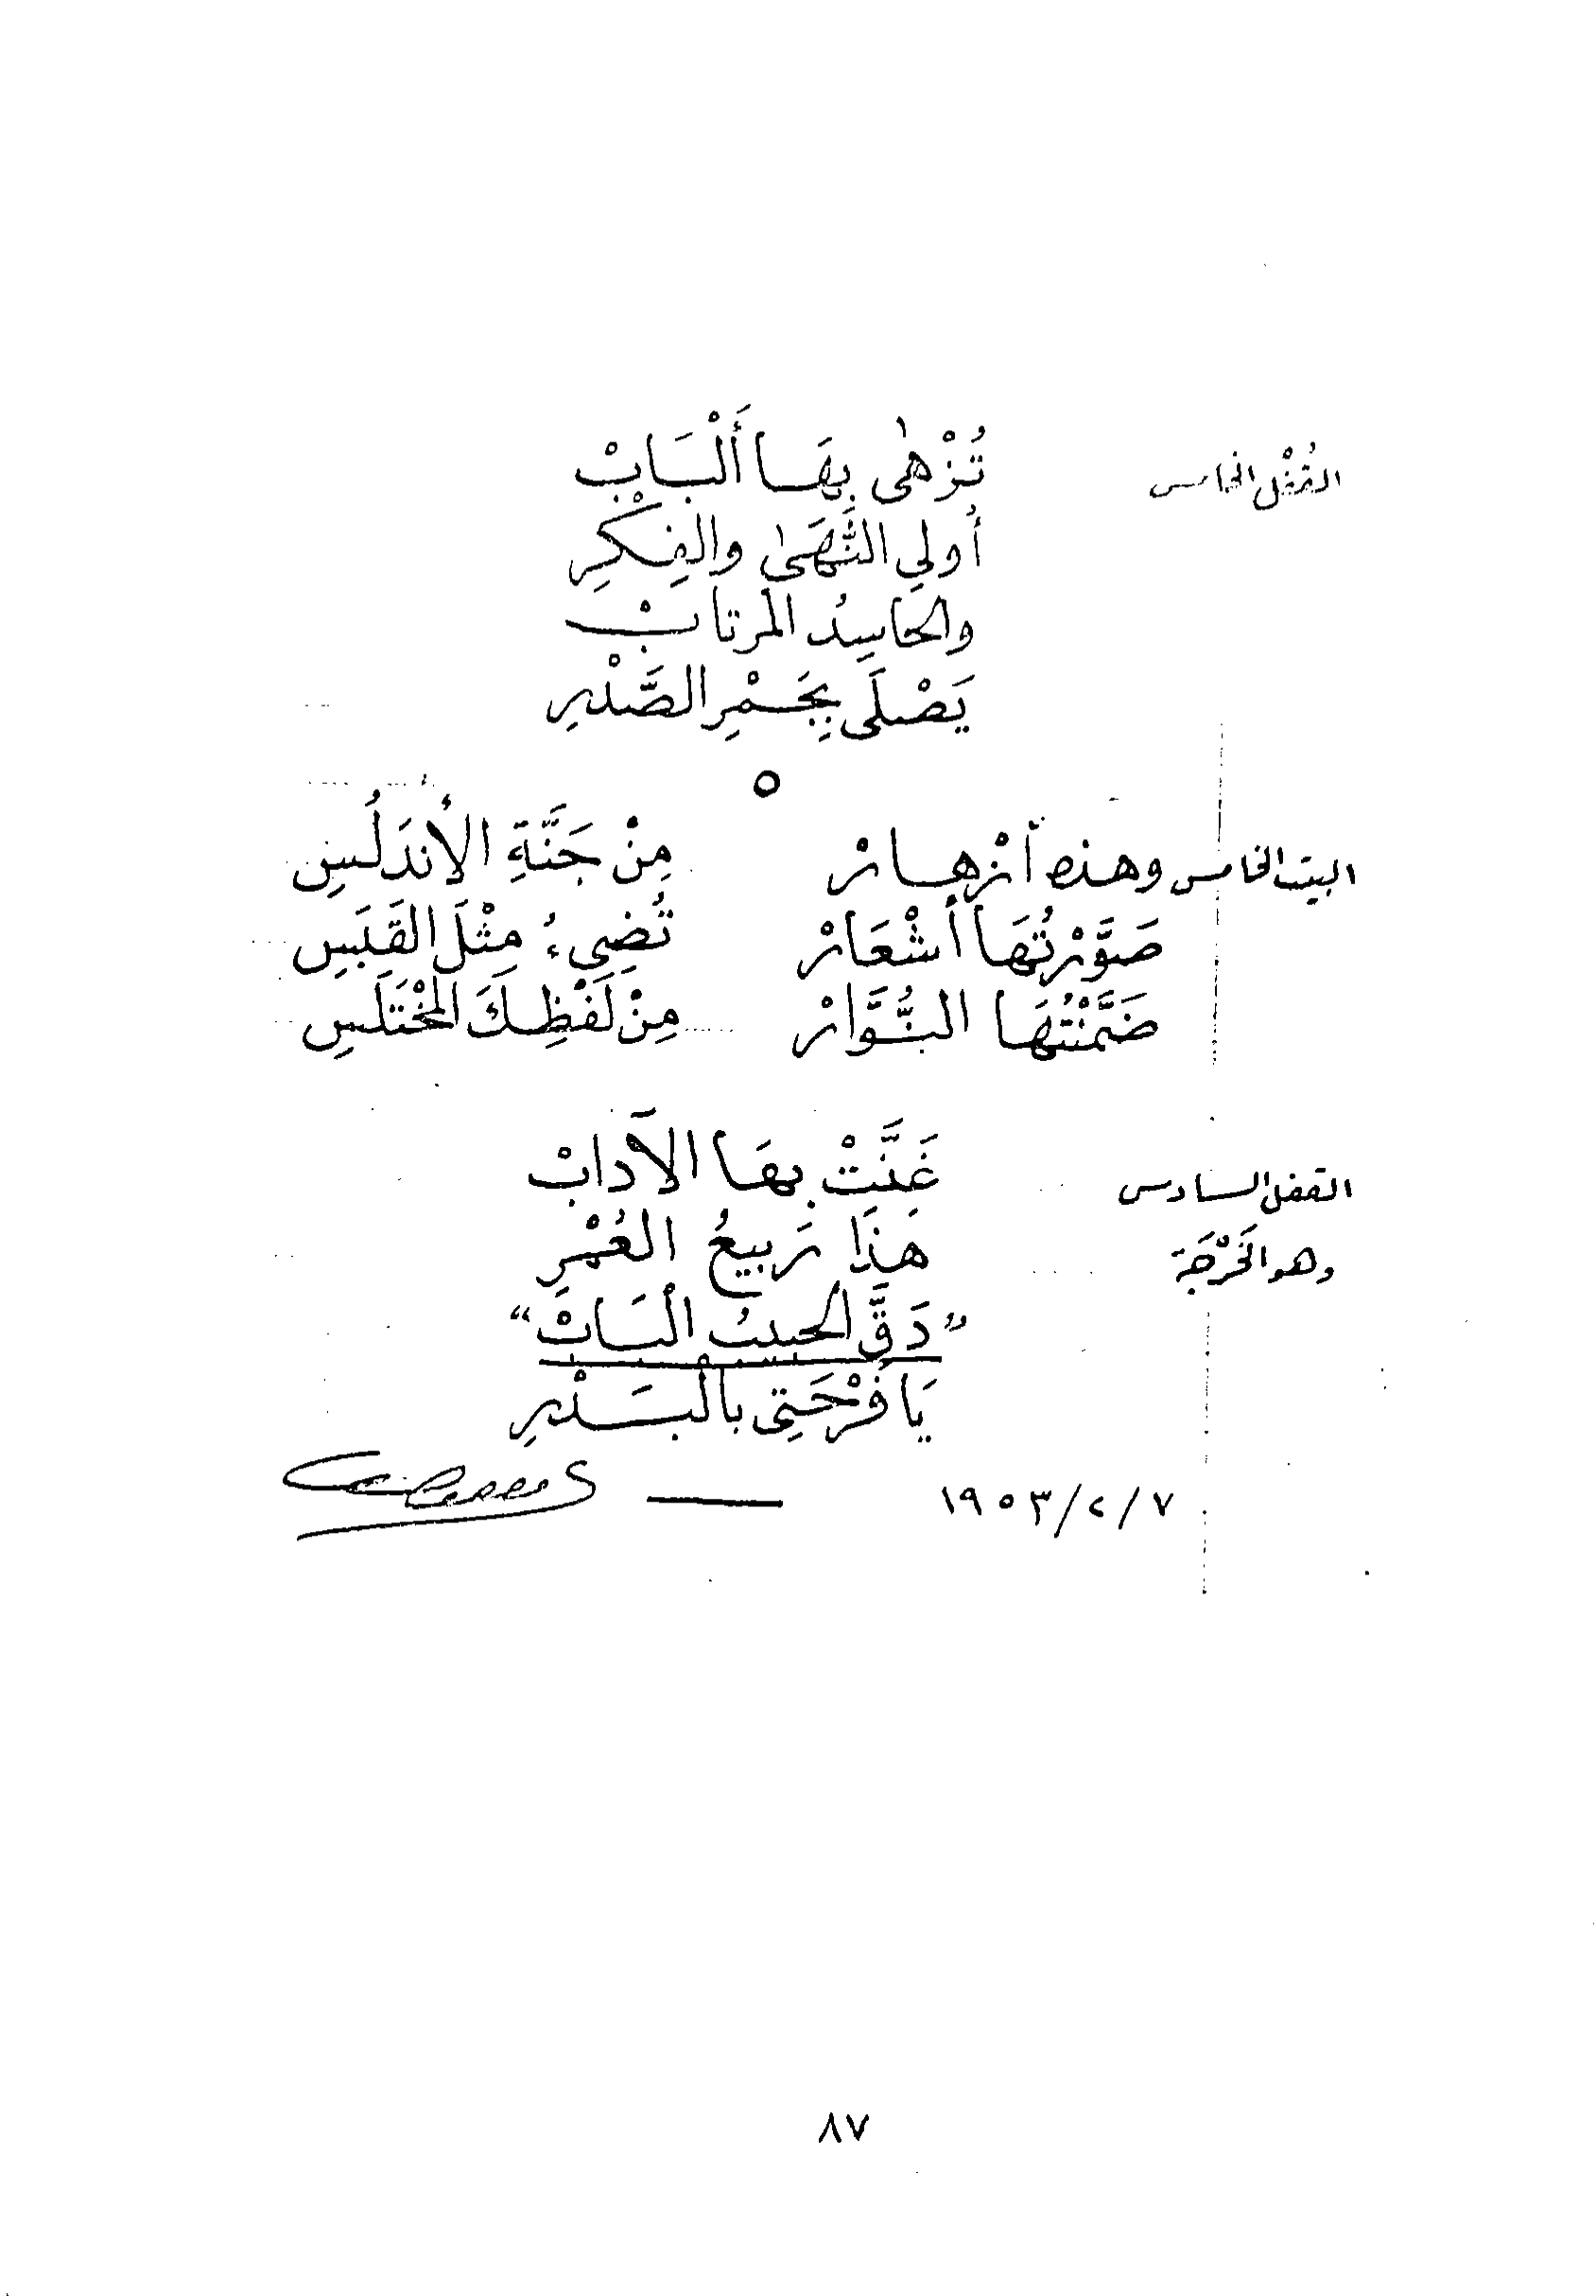 القُفْل الخامس تُزْهٰى بِهَا أَلْبَابْ
أُولي النُّهَىٰ والفِكْرِ
والحاسِدُ المرتابْ
يَصْلَى بِجَمْرِ الصَّدْرِ
٥
البيت الخامس وهذه أزْهارْ مِنْ جَنَّةِ الأندَلُسِ
صَوَّرْتُهَا أشْعَارْ تُضِيءُ مِثْلَ القَبَسِ
ضَمَّنْتُهَا النُّوَّارْ مِنْ لَفْظِكَ المخْتَلَسِ
القفل السادس غَنَّتْ بِهَا الآدابْ
وهو الخَرْجَة هَذَا رَبيعُ العُمْرِ
"دَقَّ الحبيبُ الْبَابْ"
يَا فَرْحَتِي بالبَدْرِ
٧/٢/١٩٥٣ —
٨٧